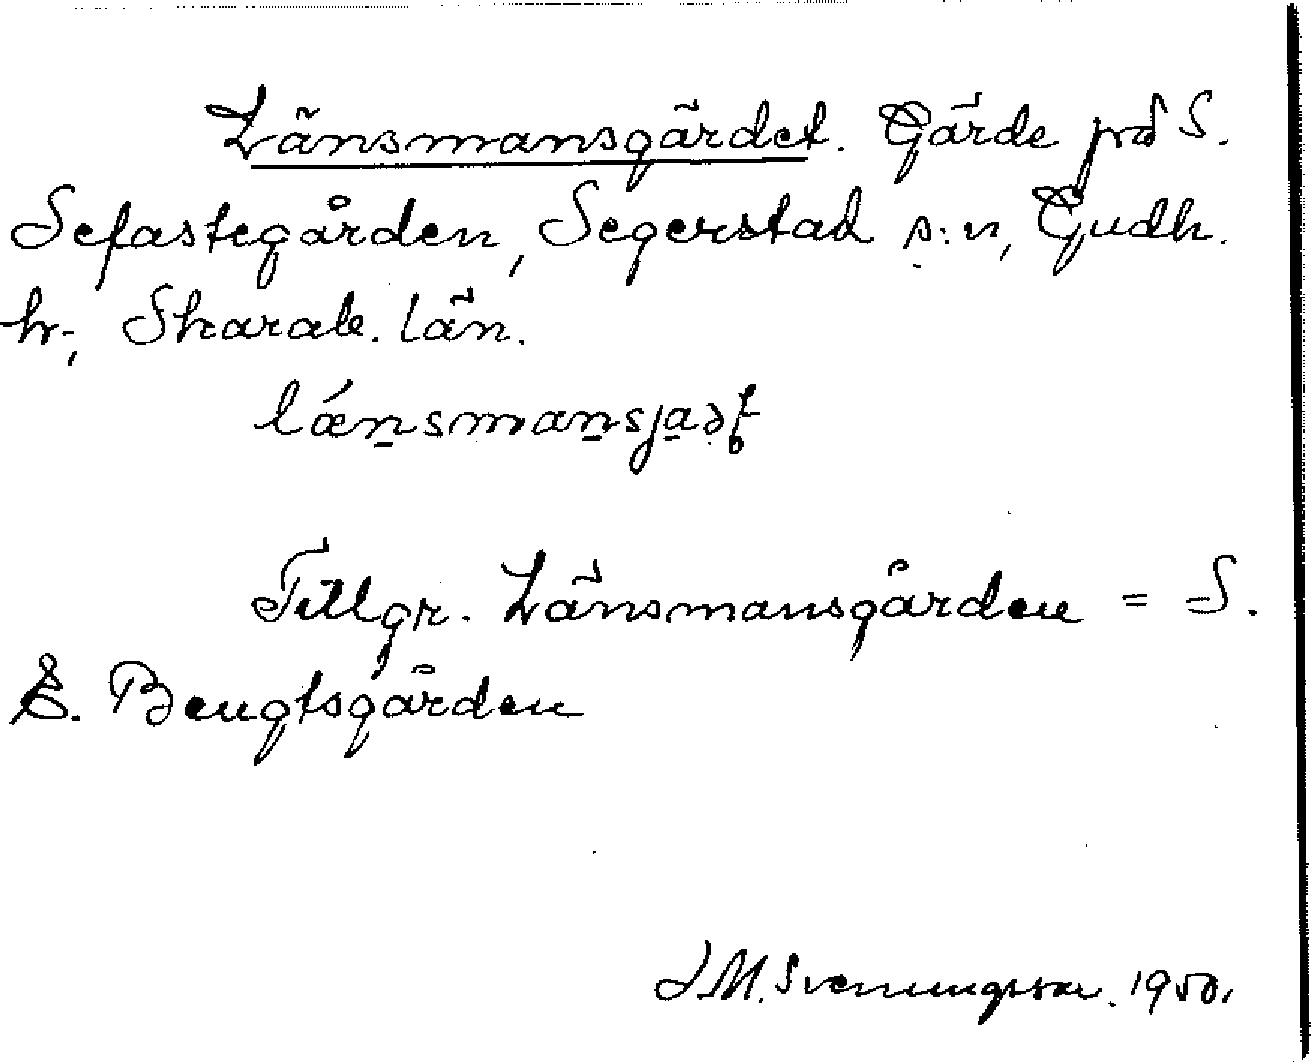 Länsmansgärdet. Gärde på S.
Sefastegården, Segerstad s:n, Gudh.
hr, Skarab. län.
Tillgr. Länsmansgården = S.
E. Bengtsgården
J M. Svenningsson. 1950.